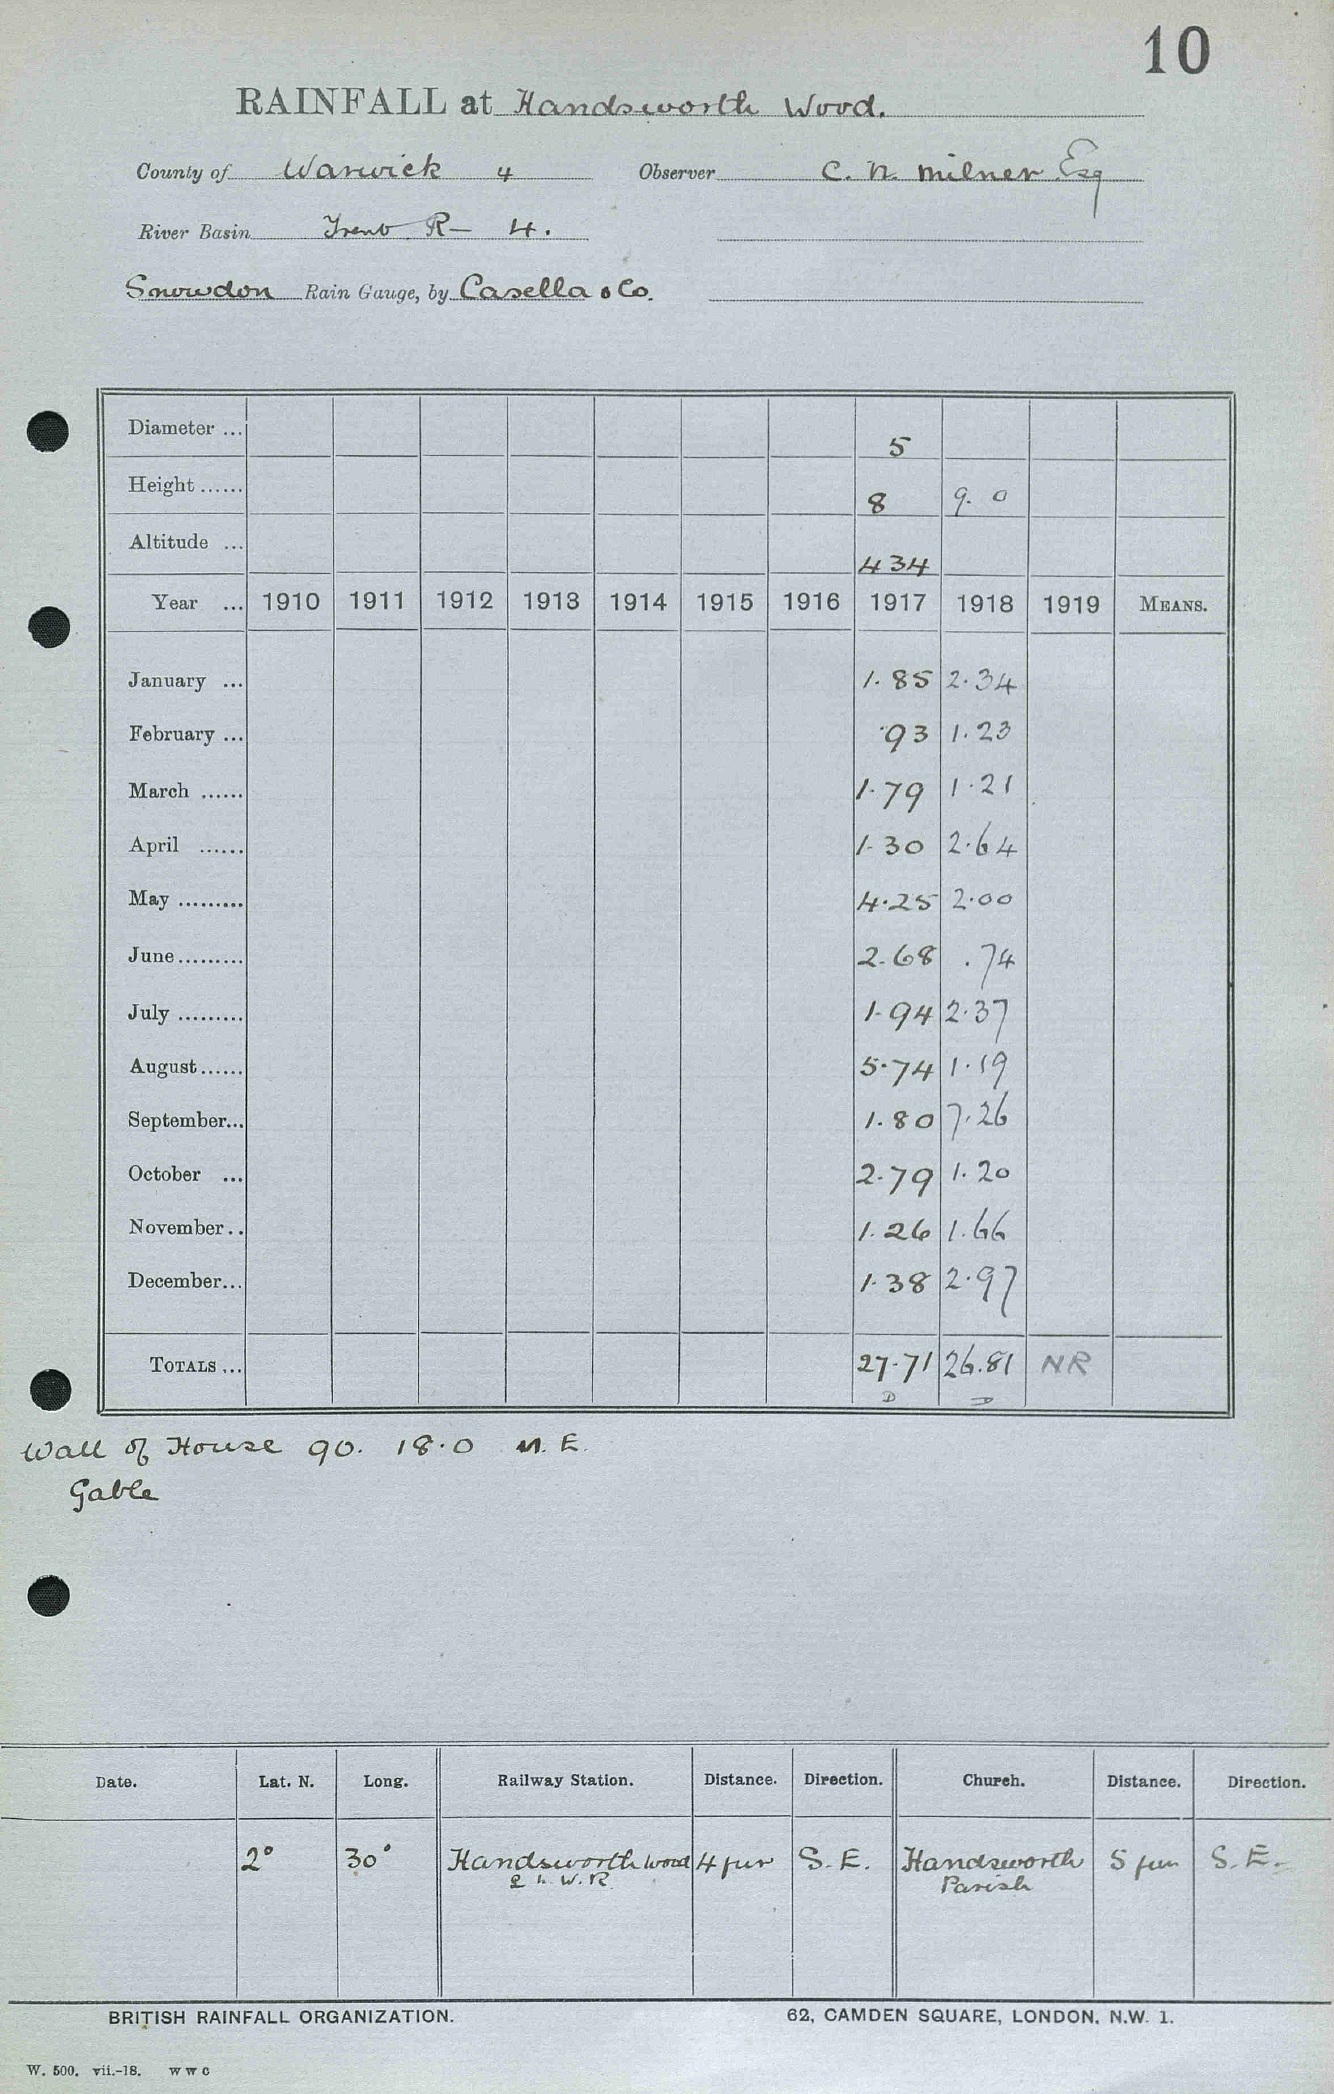 10
RAINFALL at Handsworth Wood.
County of Warwick 4 Observer C. N. Milner Esq
River Basin Trent R— 4.
Snowdon Rain Gauge, by Casella & Co.
Diameter ... 5
Height ...... 8 9. 0
Altitude ... 434
Year ... 1910 1911 1912 1913 1914 1915 1916 1917 1918 1919 MEANS.
January ... 1.85 2.34
February ... .93 1.23
March ...... 1.79 1.21
April ...... 1.30 2.64
May ......... 4.25 2.00
June......... 2.68 .74
July ......... 1.94 2.37
August...... 5.74 1.19
September... 1.80 7.26
October ... 2.79 1.20
November.. 1.26 1.66
December... 1.38 2.97
TOTALS ... 27.71 26.81 NR
D D
Wall of House 90. 18.0 N. E.
Gable
Date. Lat. N. Long. Railway Station. Distance. Direction. Church. Distance. Direction.
2° 30° Handsworth Wood 4 fur S. E. Handsworth 5 fur S. E.
L. N. W. R. Parish
BRITISH RAINFALL ORGANIZATION. 62, CAMDEN SQUARE, LONDON, N.W. 1.
W. 500. vii.-18. W W C